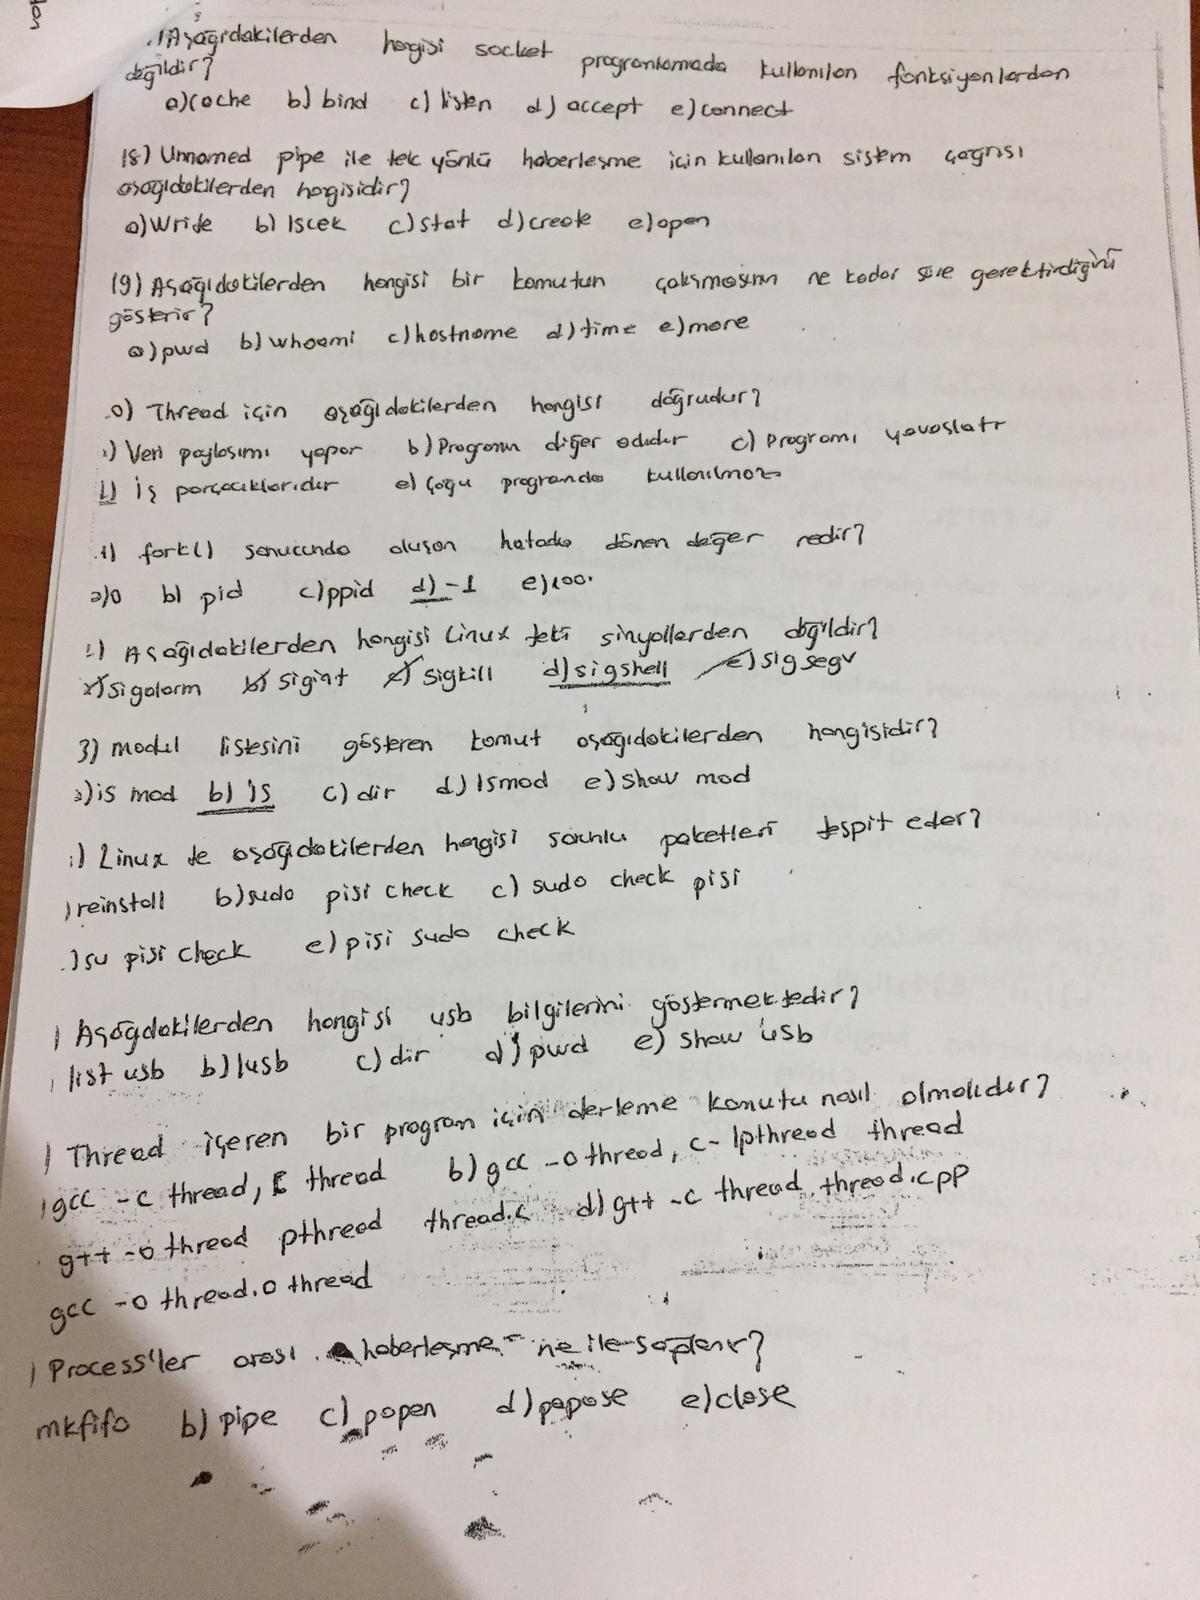 .)Aşağıdakilerden hangisi socket programlamada kullanılan fonksiyonlardan
değildir?
a)cache b) bind c) listen d) accept e)connect
18) Unnamed pipe ile tek yönlü haberleşme için kullanılan sistem çağrısı
aşağıdakilerden hangisidir?
a)Write b) lseek c)stat d)create e)open
19) Aşağıdakilerden hangisi bir komutun çalışmasının ne kadar süre gerektirdiğini
gösterir?
a)pwd b) whoami c)hostname d) time e)more
.0) Thread için aşağıdakilerden hangisi doğrudur?
a) Veri paylaşımı yapar b) Programın diğer adıdır c) Programı yavaşlatır
d) İş parçacıklarıdır e) Çoğu programda kullanılmaz
.1) fork() sonucunda oluşan hatada dönen değer nedir?
a)0 b) pid c)ppid d) -1 e)100.
2) Aşağıdakilerden hangisi Linux teki sinyallerden değildir?
a)Sigalarm b) Sigint c) Sigkill d)sigshell e)sigsegv
3) modül listesini gösteren komut aşağıdakilerden hangisidir?
a)is mod b) ls c) dir d) lsmod e) show mod
) Linux te aşağıdakilerden hangisi sorunlu paketleri tespit eder?
)reinstall b)sudo pisi check c) sudo check pisi
.)su pisi check e) pisi sudo check
) Aşağıdakilerden hangisi usb bilgilerini göstermektedir?
list usb b) lusb c) dir d) pwd e) show usb
) Thread içeren bir program için derleme komutu nasıl olmalıdır?
)gcc -c thread, thread b) gcc -o thread, c- lpthread thread
g++ -o thread pthread thread.c d) g++ -c thread, thread.cpp
gcc -o thread.o thread
) Process'ler arası haberleşme ne ile sağlanır?
mkfifo b) pipe c) popen d) papose e)close